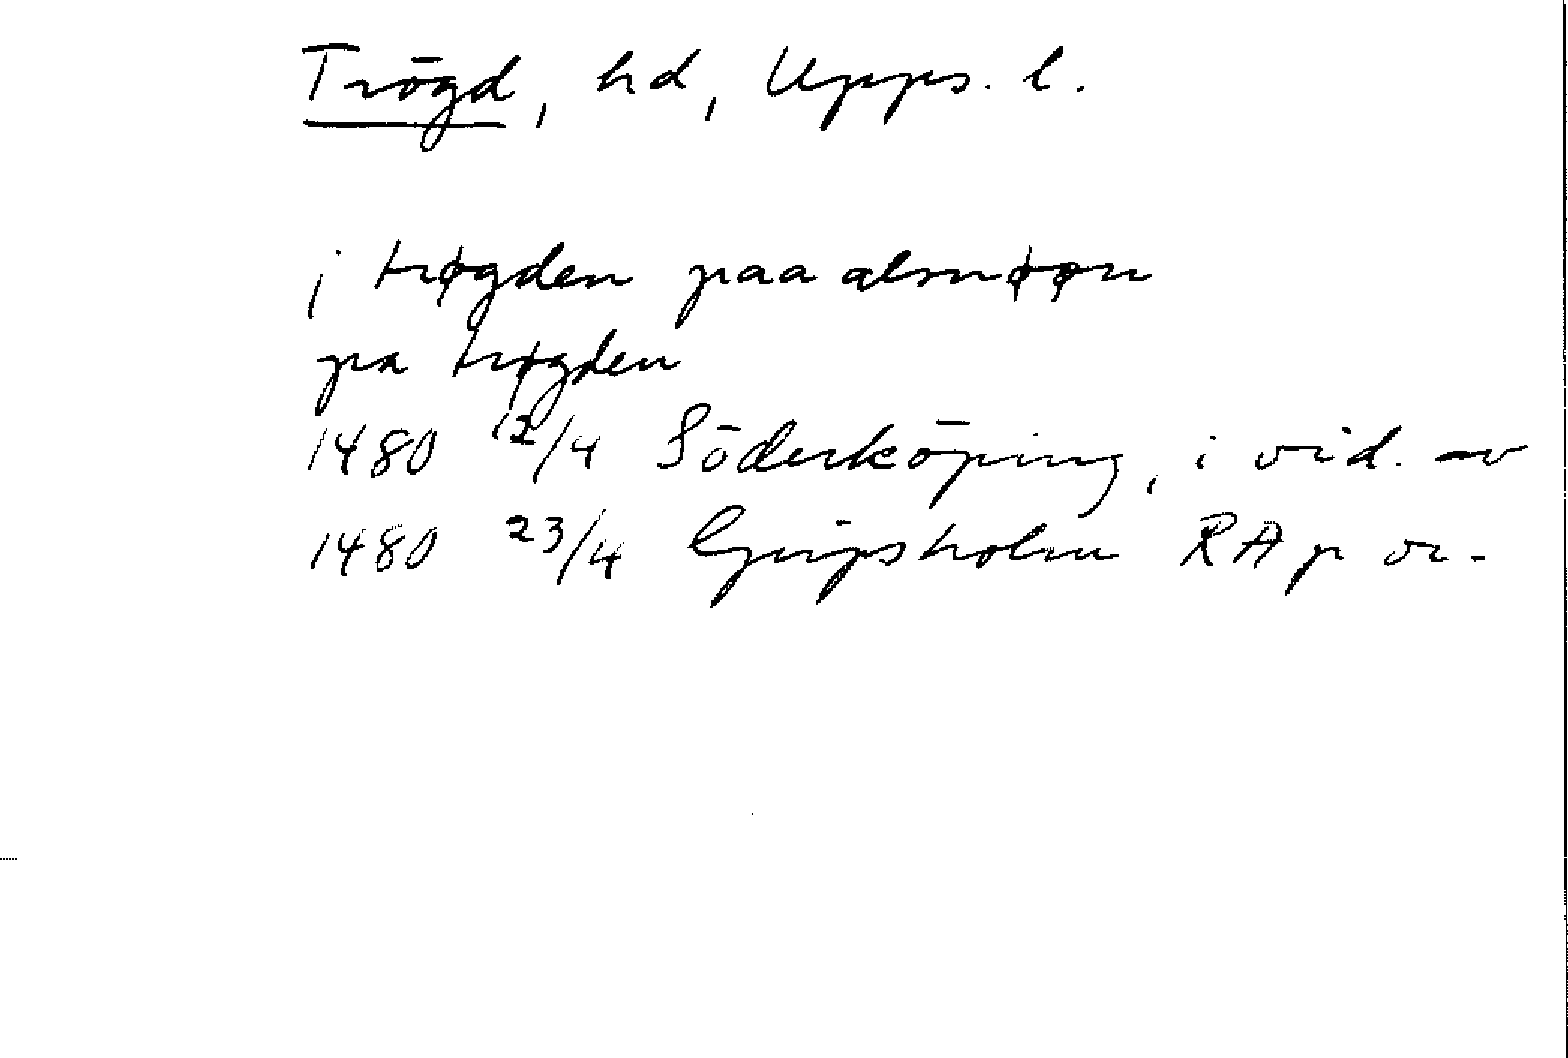 Trögd, hd, Upps. l.
j trøgden paa almøøn
pa trøgden
1480 12/4 Söderköping, i vid. av
1480 23/4 Gripsholm RA p or.